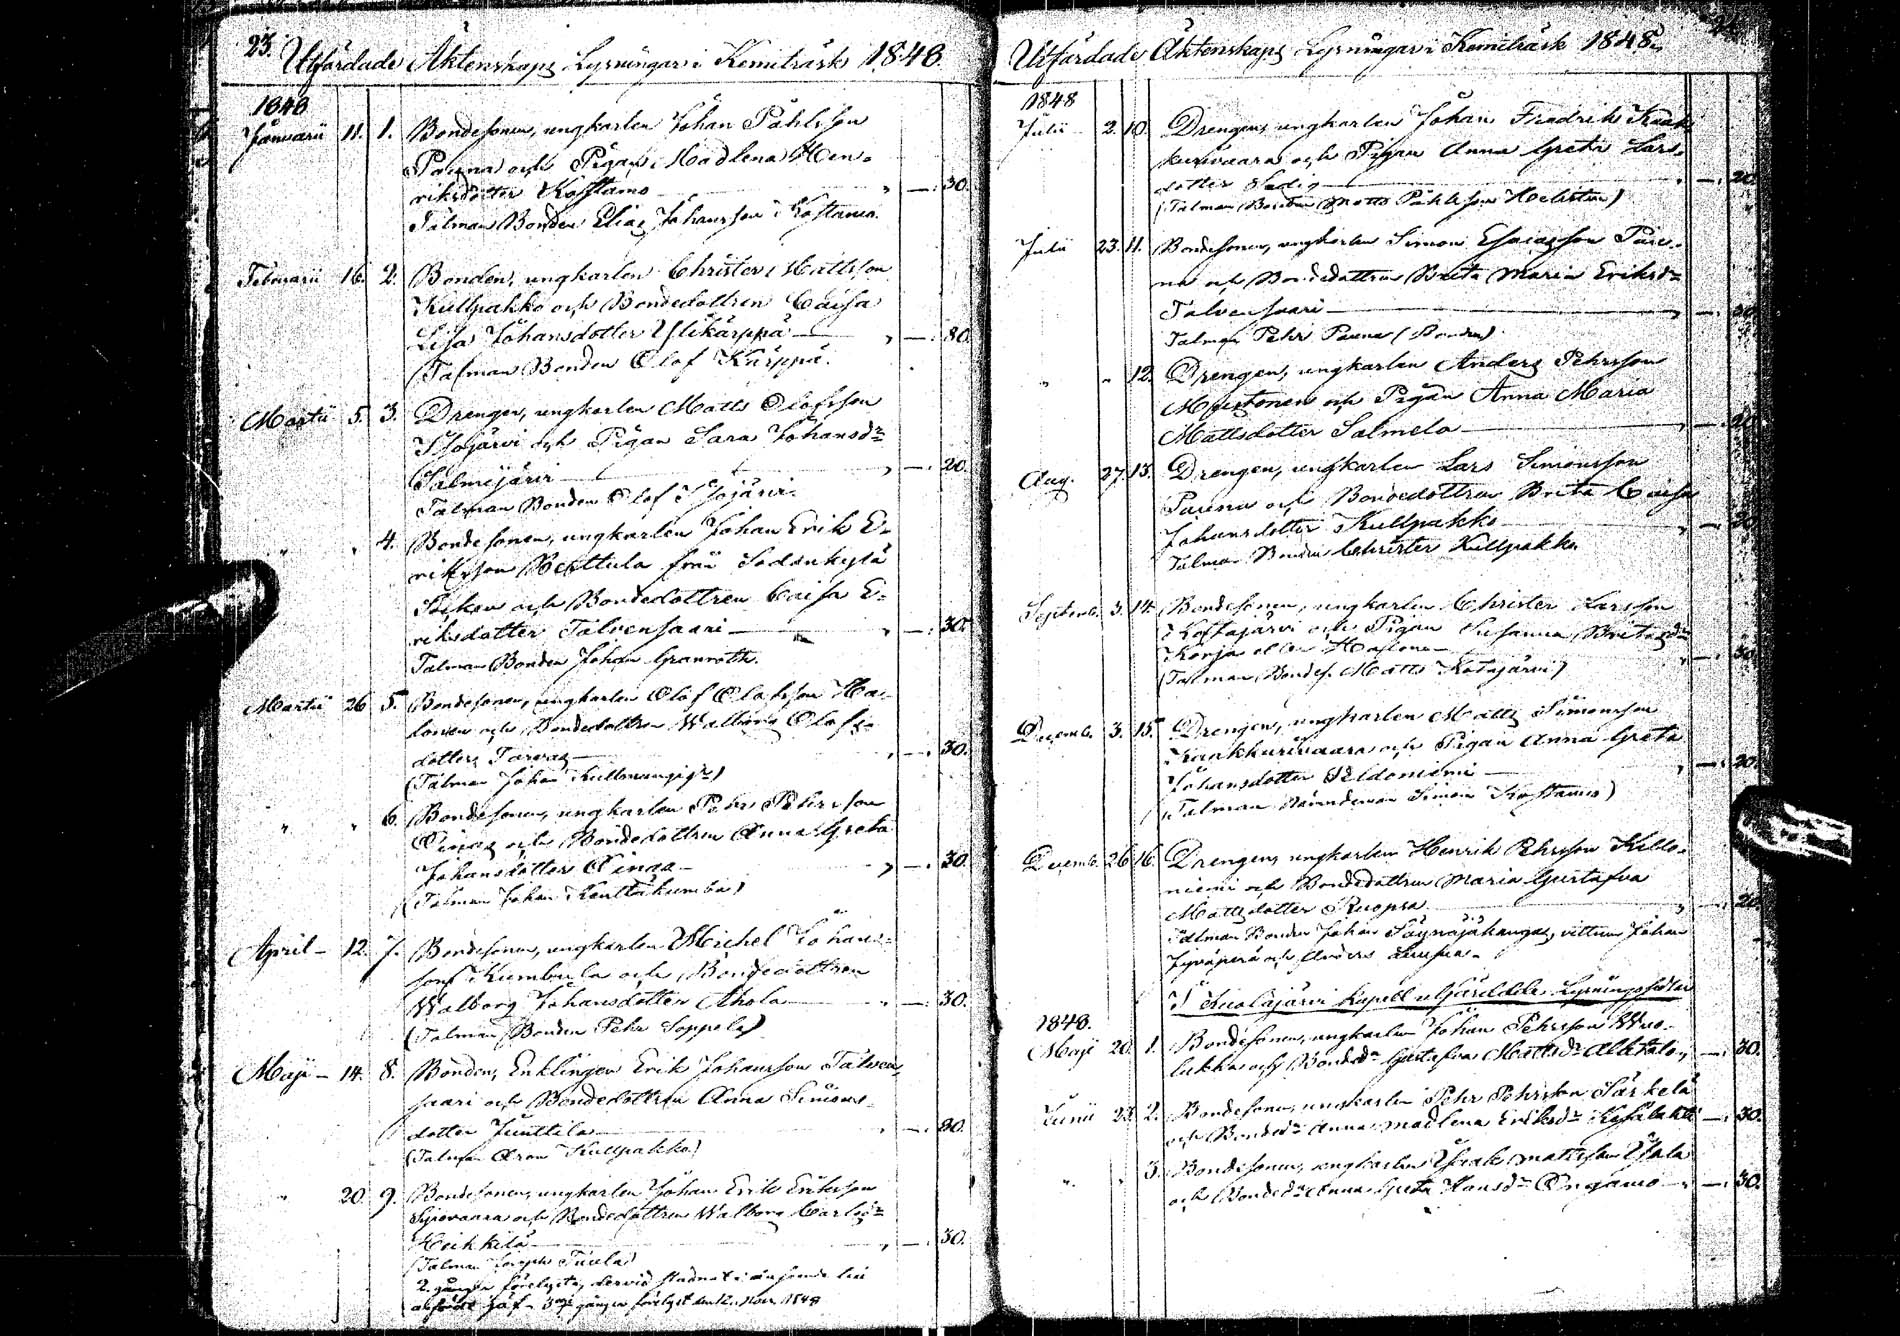 23.
Utfärdade Äktenskaps Lysningar i Kemiträsk 1848.
1848
Januarii 11. 1. Bondesonen, ungkarlen Johan Påhlsson
Pauna och Pigan Madlena Hen-
riksdotter Kostamo " —. 30.
Talman Bonden Elias Johansson Kostamo.
Februarii 16. 2. Bonden, ungkarlen Christer Mattsson
Kullpakko och Bondedottren Caisa
Lisa Johansdotter Ylikärppä " —. 80.
(Talman Bonden Olof Kärppä.
Martii 5. 3. Drengen, ungkarlen Matts Olofsson
Isojärvi och Pigan Sara Johansdr
Salmijärvi " —. 20.
Talman Bonden Olof Isojärvi.
" " 4. Bondesonen, ungkarlen Johan Erik E-
riksson från Sodankylä
Socken och Bondedottren Caisa E-
riksdotter Talvensaari " —. 30.
Talman Bonden Johan Granroth.
Martii 26 5. Bondesonen, ungkarlen Olof Olofsson Ha-
lonen och Bondedottren Walborg Olofs-
dotter Tarvas " —. 30.
(Talman Johan
" " 6. Bondesonen, ungkarlen Pehr Pehrsson
Oinas och Bondedottren Anna Greta
Johansdotter Oinas " —. 30.
(Talman Johan Kenttäkumbu)
April 12. 7. Bondesonen, ungkarlen Michel Johans-
son Kumbula och Bondedottren
Walborg Johansdotter Ahola " —. 30.
(Talman Bonden Pehr Soppela)
Maji 14. 8. Bonden, Enklingen Erik Johansson Talven-
saari och Bondedottren Anna Simons-
dotter Junttila " —. 80.
(Talman Aron Kullpakko)
" 20. 9. Bondesonen, ungkarlen Johan Erik Eriksson
och Bondedottren Walborg Carlsdr
Heikkilä " —. 30.
(Talman Joseph Tuula)
2. gånger förelyste, dervid
jäf. 3dje gången förelyst den 12. Nov. 1848
Utfärdade Äktenskaps Lysningar i Kemiträsk 1848.
1848
Julii 2. 10. Drengen, ungkarlen Johan Fredrik Kaak-
kurivaara och Pigan Anna Greta Lars-
dotter Sadig " —. 20.
(Talman Bonden Matts Påhlsson
Julii 23. 11. Bondesonen, ungkarlen Simon Esaiasson Pau-
na och Bondedottren Brita Maria Eriksdr
Talvensaari " —. 30.
Talman Pehr Pauna (Bonden)
" " 12. Drengen, ungkarlen Anders Pehrsson
Mustonen och Pigan Anna Maria
Mattsdotter Salmela " —. 20.
Aug. 27. 13. Drengen, ungkarlen Lars Simonsson
Pauna och Bondedottren Brita Caisa
Johansdotter Kullpakko " —. 20.
Talman Bonden Christer Kullpakko.
Septemb. 3. 14. Bondesonen, ungkarlen Christer Larsson
Kostajärvi och Pigan Susanna Britasdr
Korja eller " —. 30.
(Talman Bondes. Matts Kotajärvi)
Decemb. 3. 15. Drengen, ungkarlen Matts Simonsson
Kaakkurivaara och Pigan Anna Greta
Johansdotter Peldoniemi " —. 20.
(Talman Nämndeman Simon Kostamo)
Decemb. 26 16. Drengen, ungkarlen Henrik Pehrsson Kello-
niemi och Bondedottren Maria Gustafva
Mattsdotter Kuopsa " —. 20.
Talman Bonden Johan Säynäjäkangas, vittnen Johan
Jyväperä och Anders
I Kuolajärvi Kapell utfärdade Lysningssedlar
1848.
Maji 20. 1. Bondesonen, ungkarlen Johan Pehrsson Wuo-
lukka och Bondedr Gustafva Mattsdr Alatalo " —. 30.
Junii 23. 2. Bondesonen, ungkarlen Pehr Pehrsson Särkelä
och Bondedr Anna Madlena Eriksdr " —. 30.
" " 3. Bondesonen, ungkarlen Isaak Mattsson
och Bondedr Anna Greta Hansdr Ongamo " —. 30.